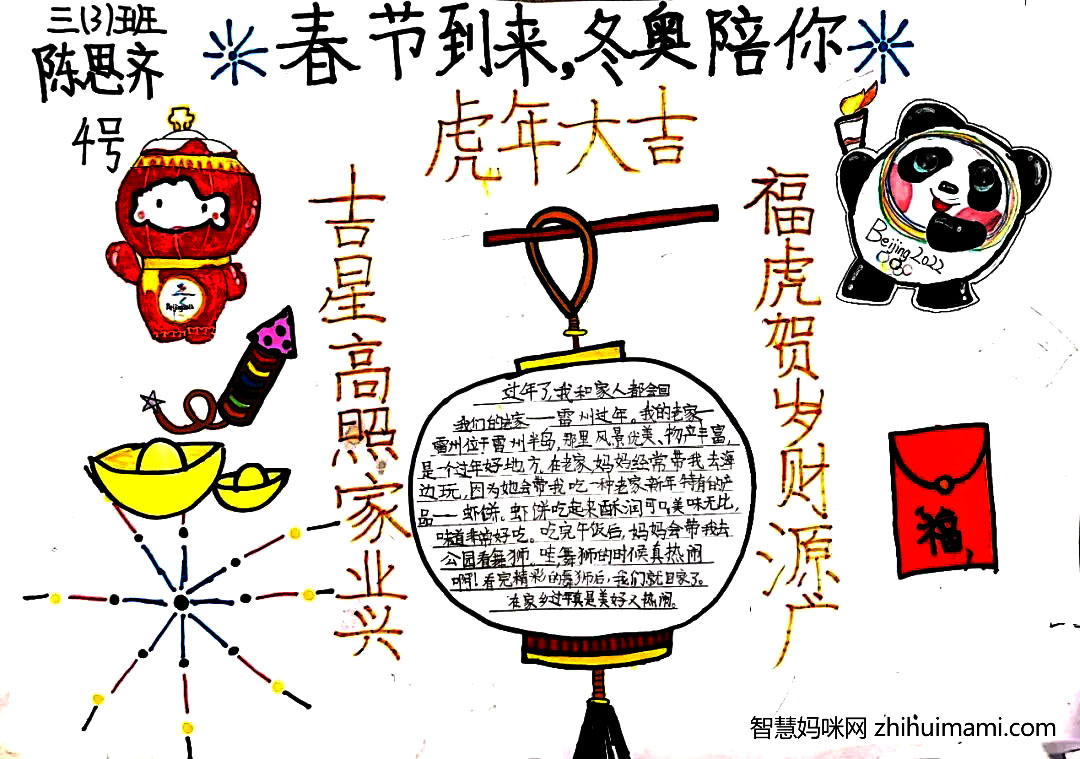 三(3)班
陈思齐
4号
春节到来,冬奥陪你
虎年大吉
吉星高照家业兴
福虎贺岁财源广
Beijing2022
过年了,我和家人都会回
我们的老家——雷州过年。我的老家—
雷州位于雷州半岛,那里风景优美、物产丰富,
是一个过年好地方。在老家,妈妈经常带我去海
边玩,因为她会带我吃一种老家新年特有的产
品——虾饼。虾饼吃起来酥润可口,美味无比,
味道非常好吃。吃完午饭后,妈妈会带我去
公园看舞狮。哇,舞狮的时候真热闹
啊!看完精彩的舞狮后,我们就回家了。
在家乡过年真是美好又热闹。
福
智慧妈咪网 zhihuimami.com